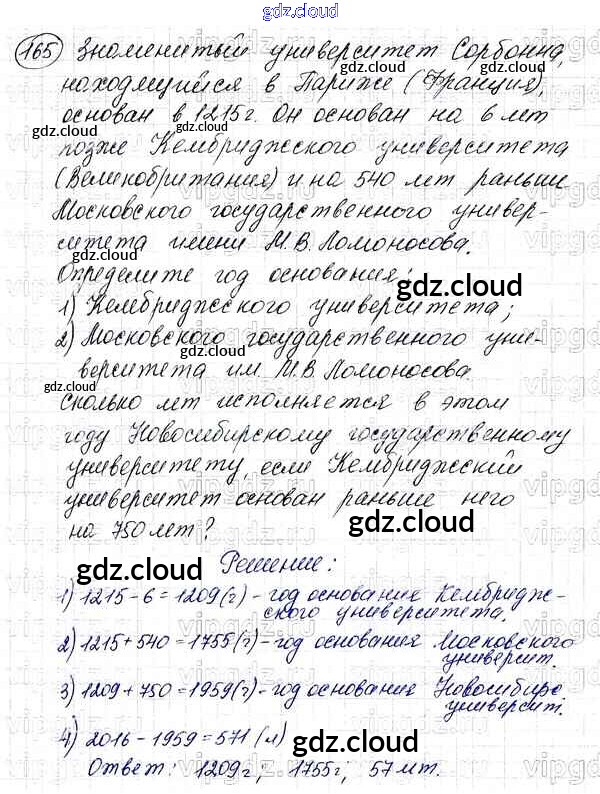 gdz.cloud
165 Знаменитый университет Сорбонна,
находящийся в Париже (Франция),
основан в 1215 г. Он основан на 6 лет
позже Кембриджского университета
(Великобритания) и на 540 лет раньше
Московского государственного универ-
ситета имени М.В. Ломоносова.
Определите год основания:
1) Кембриджского университета;
2) Московского государственного уни-
верситета им. М.В. Ломоносова.
Сколько лет исполняется в этом
году Новосибирскому государственному
университету, если Кембриджский
университет основан раньше него
на 750 лет?
Решение:
1) 1215 - 6 = 1209 (г) - год основания Кембридж-
ского университета.
2) 1215 + 540 = 1755 (г) - год основания Московского
университ.
3) 1209 + 750 = 1959 (г) - год основания Новосибирс.
университ.
4) 2016 - 1959 = 571 (л)
Ответ: 1209г; 1755г; 57 лет.